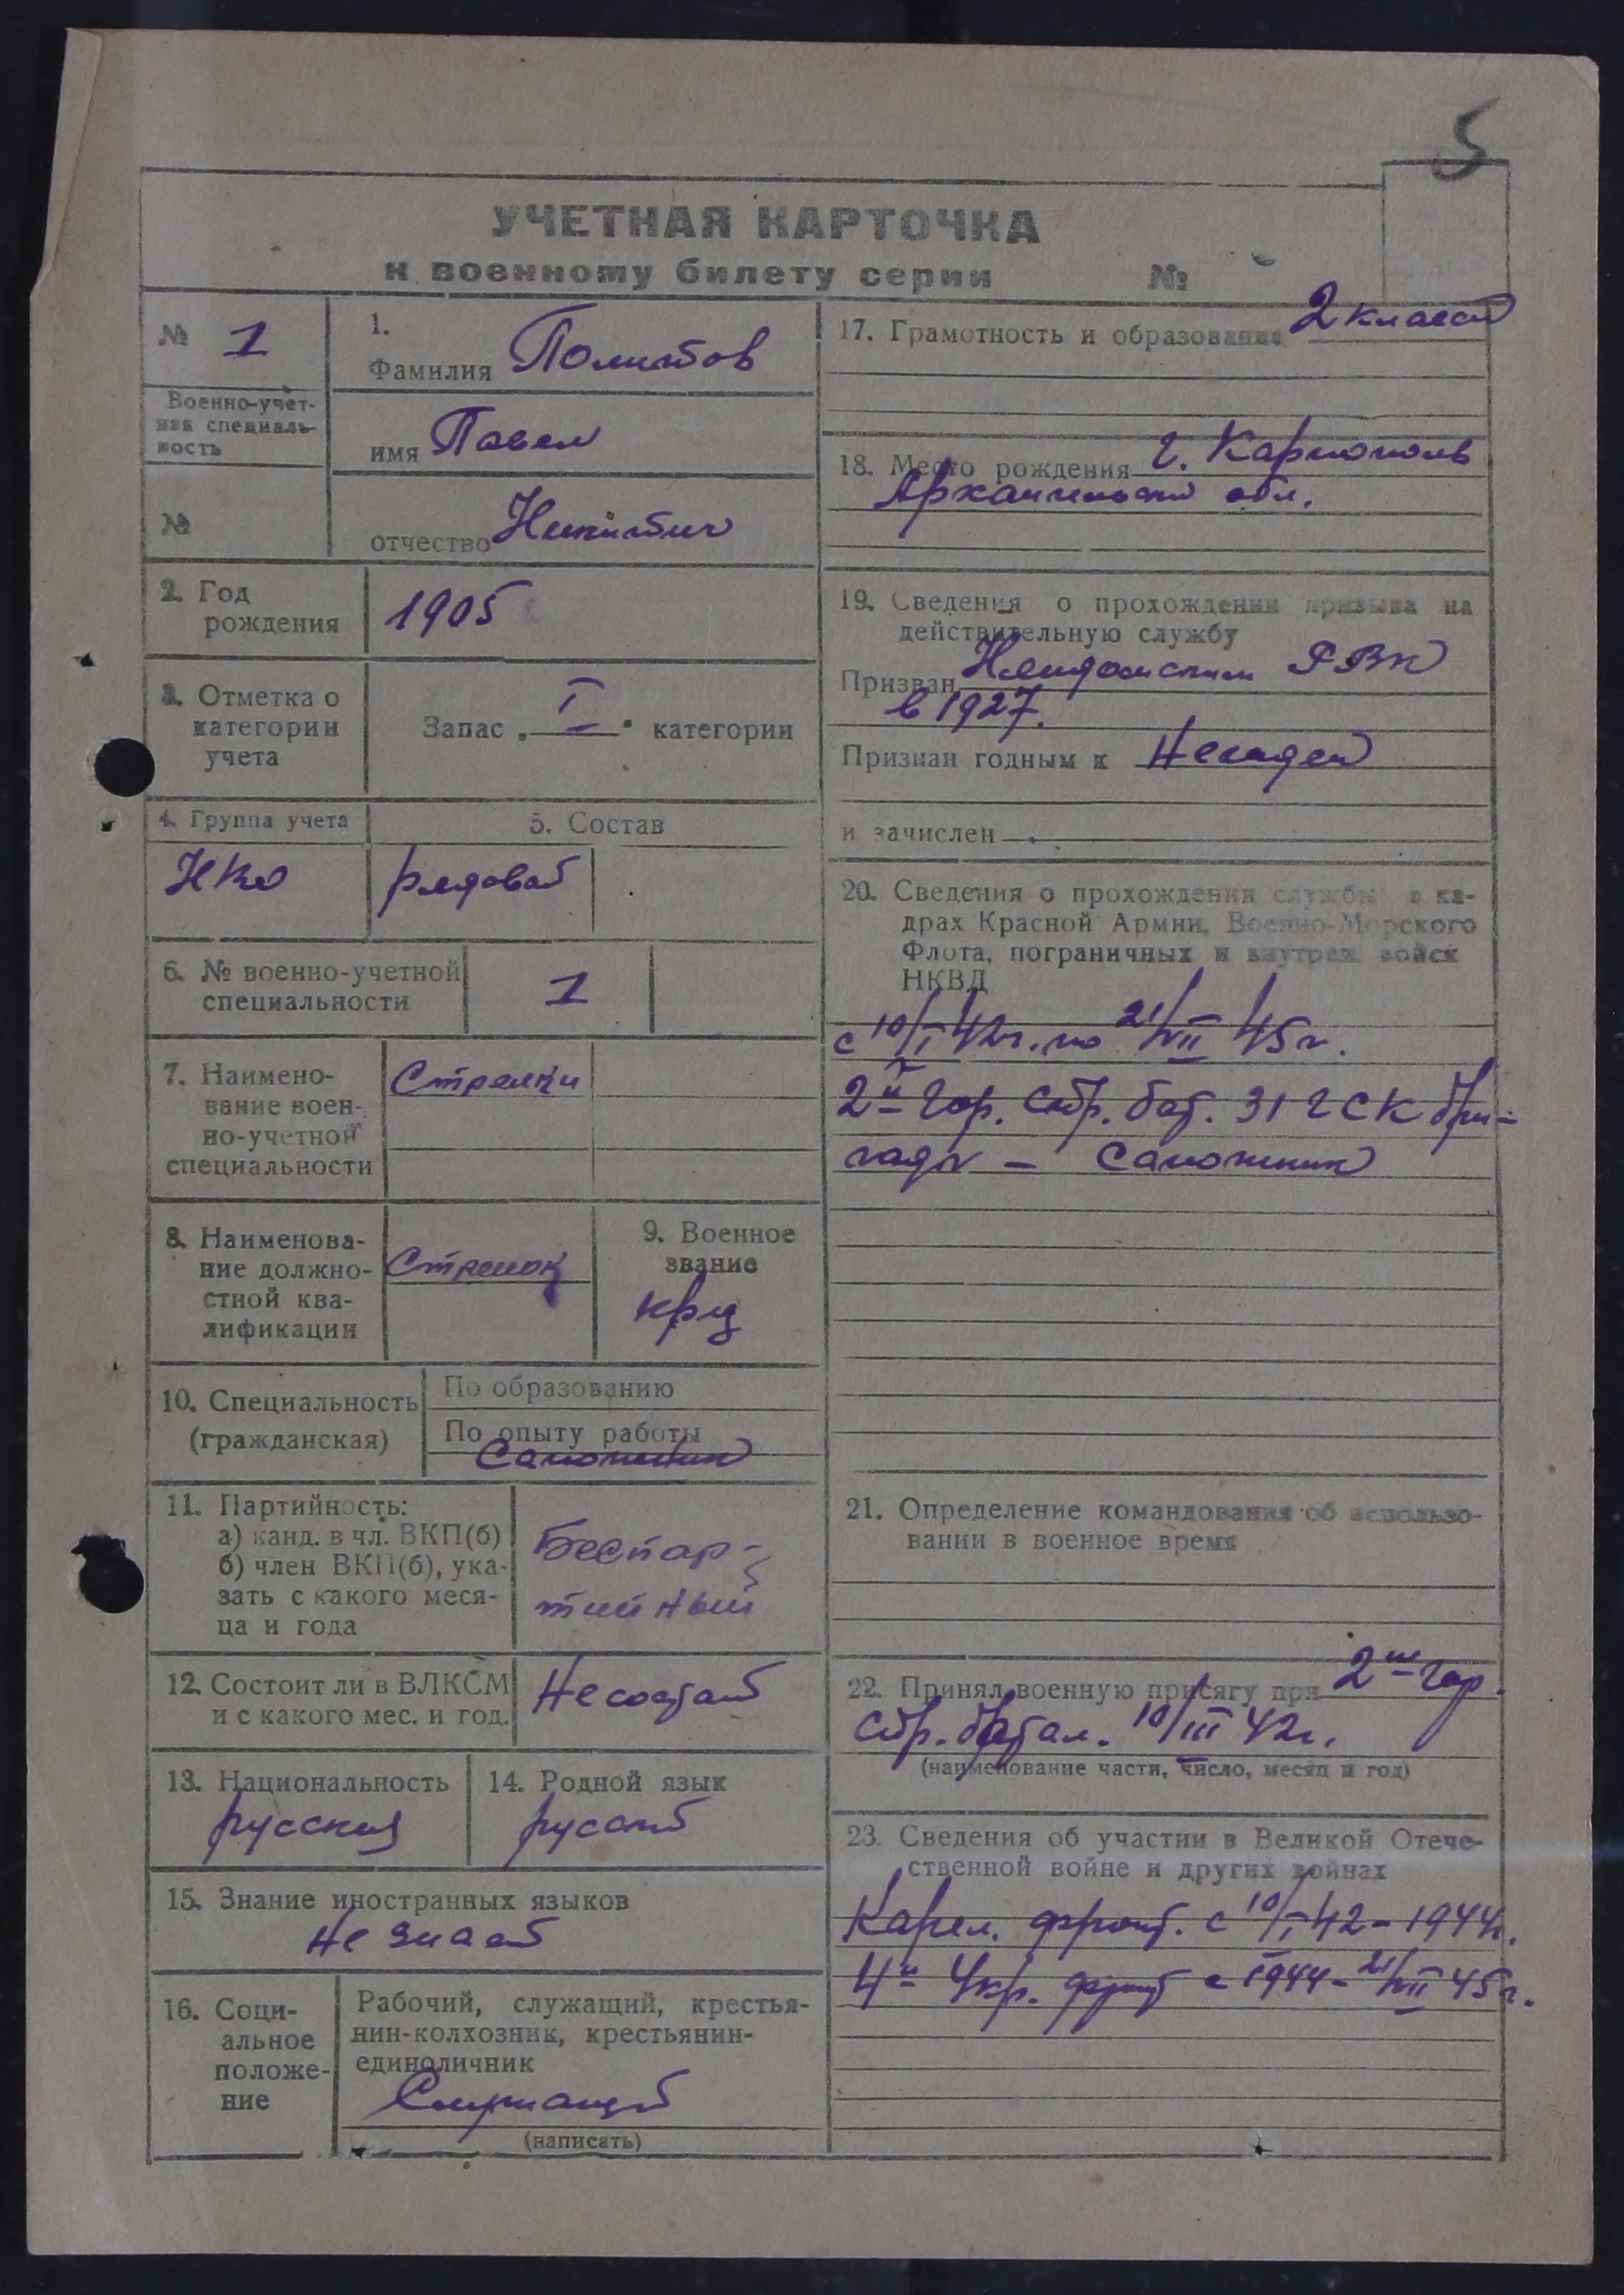 5
УЧЕТНАЯ КАРТОЧКА
к военному билету серии №
№ 1
Военно-учет-
ная специаль-
ность
№
1.
Фамилия Политов
имя Павел
отчество Никитич
2. Год
рождения
1905
3. Отметка о
категории
учета
Запас „ I " категории
4. Группа учета
НКО
5. Состав
рядовой
6. № военно-учетной
специальности
1
7. Наимено-
вание воен-
но-учетной
специальности
Стрелки
8. Наименова-
ние должно-
стной ква-
лификации
Стрелок
9. Военное
звание
кр-ц
10. Специальность
(гражданская)
По образованию
По опыту работы
Сапожник
11. Партийность:
а) канд. в чл. ВКП(б)
б) член ВКП(б), ука-
зать с какого меся-
ца и года
Беспар-
тийный
12. Состоит ли в ВЛКСМ
и с какого мес. и год.
Не состоит
13. Национальность
русский
14. Родной язык
русский
15. Знание иностранных языков
Не знает
16. Соци-
альное
положе-
ние
Рабочий, служащий, крестья-
нин-колхозник, крестьянин-
единоличник
Служащий
(написать)
17. Грамотность и образование 2 класса
18. Место рождения г. Каргополь
Архангельской обл.
19. Сведения о прохождении призыва на
действительную службу
Призван Няндомским РВК
в 1927.
Признан годным к Негоден
и зачислен
20. Сведения о прохождении службы в ка-
драх Красной Армии, Военно-Морского
Флота, пограничных и внутрен. войск
НКВД
с 10/I 42г. по 21/VII 45г.
2й гор. стр. бат. 31 г СК бри-
гады – Сапожник
21. Определение командования об использо-
вании в военное время
22. Принял военную присягу при 2м гор.
стр. батал. 10/III 42г.
(наименование части, число, месяц и год)
23. Сведения об участии в Великой Отече-
ственной войне и других войнах
Карел. фронт. с 10/I 42 – 1944г.
4й Укр. фронт с 1944 – 21/VII 45г.